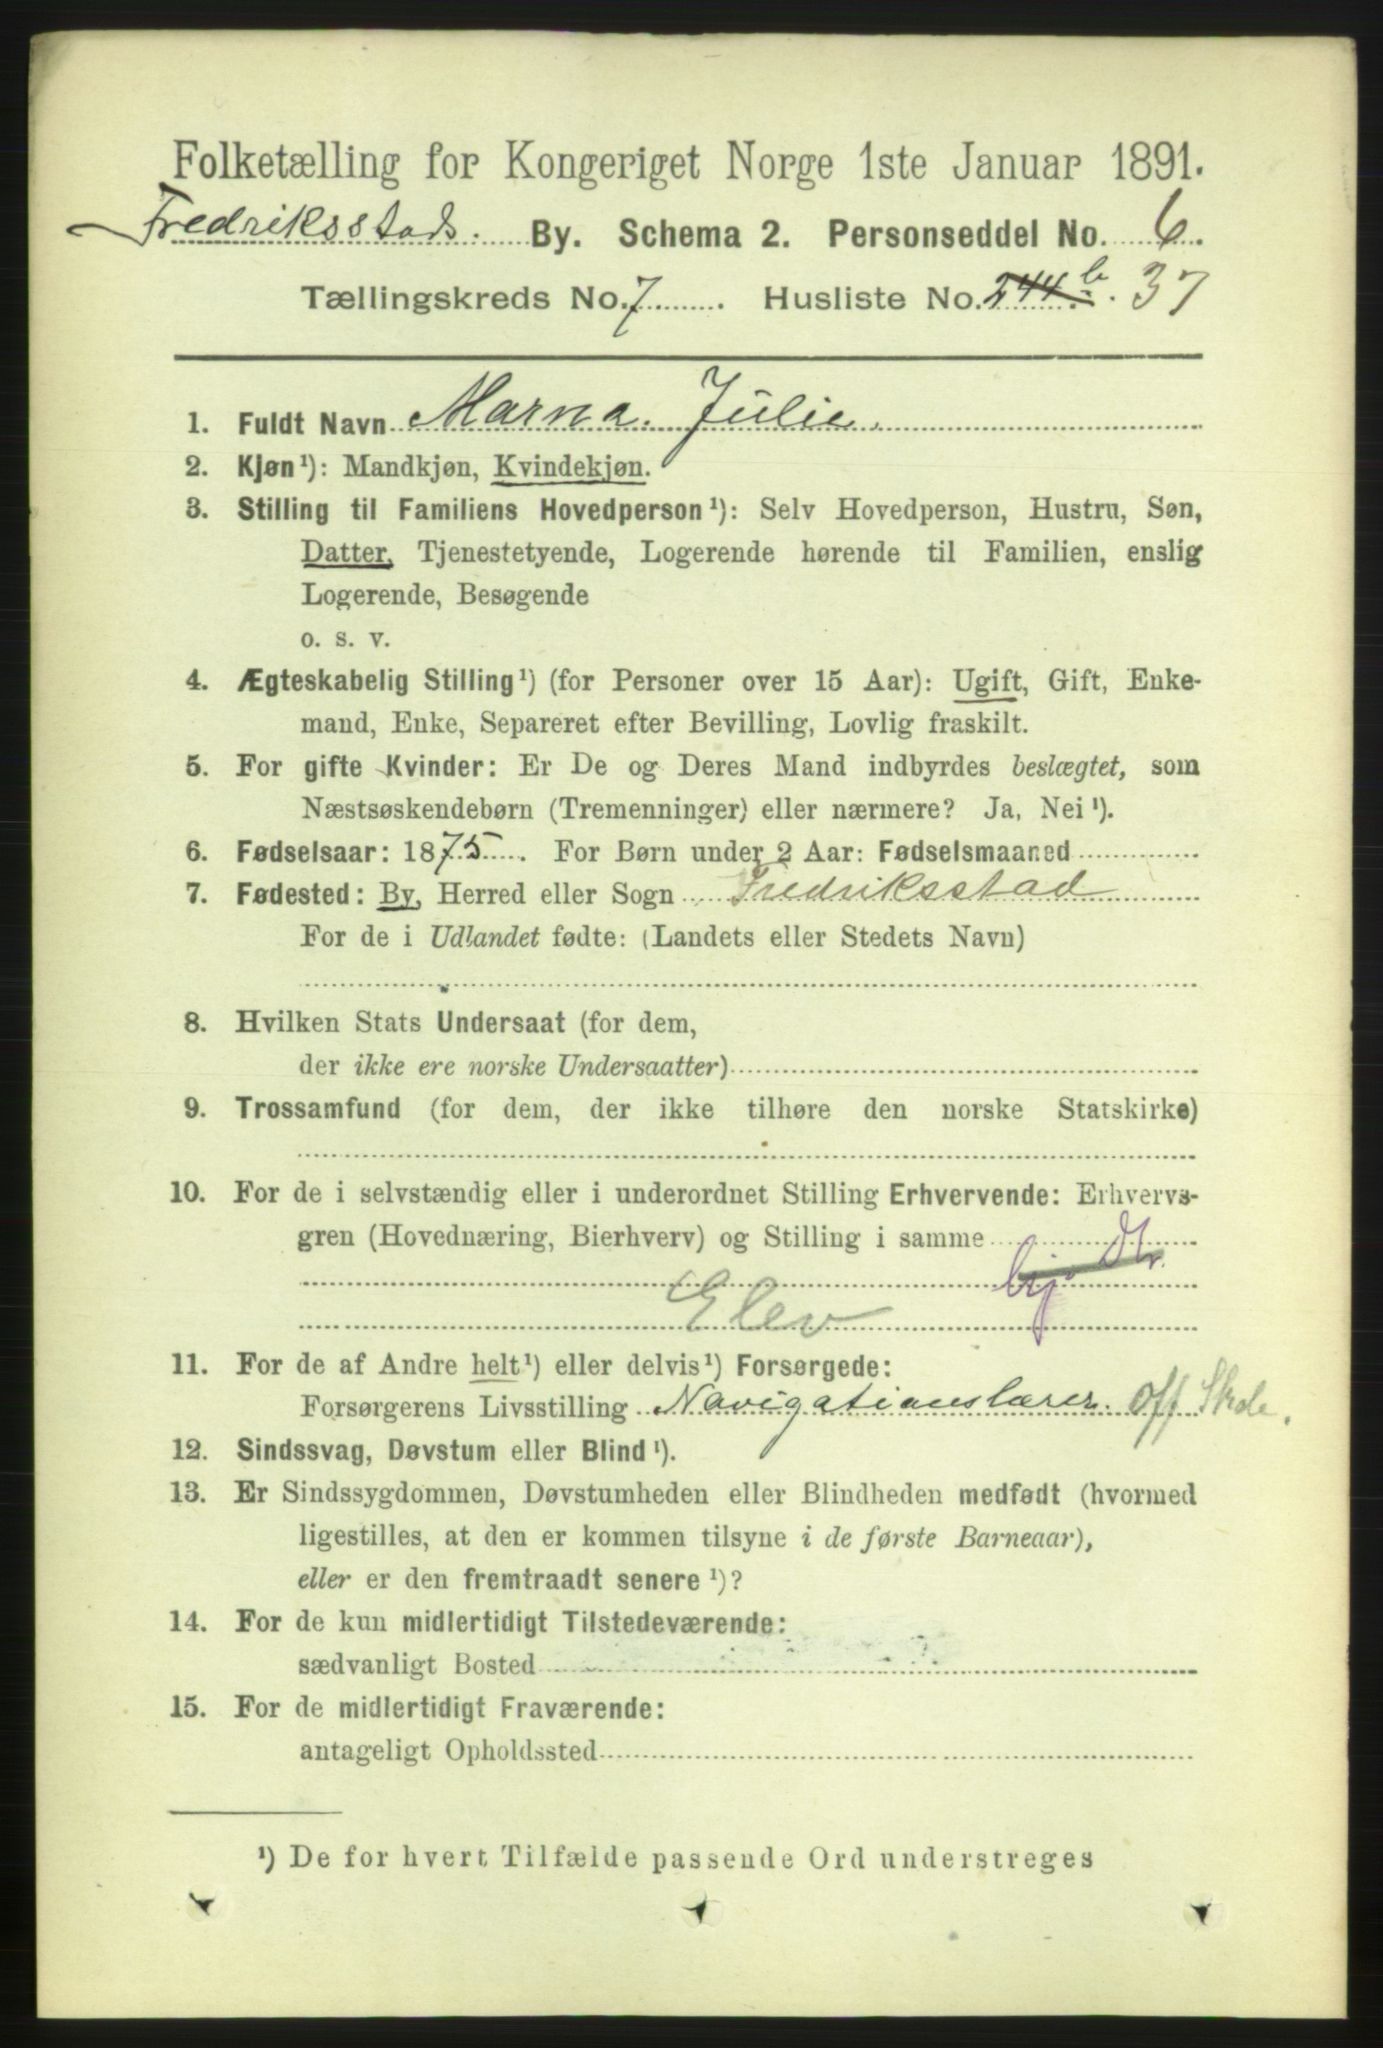 Folketælling for Kongeriget Norge 1ste Januar 1891.
Fredriksstads. By. Schema 2. Personseddel No. 6.
Tællingskreds No. 7. Husliste No. 244 b. 37
1. Fuldt Navn Marna Julie.
2. Kjøn¹): Mandkjøn, Kvindekjøn.
3. Stilling til Familiens Hovedperson¹): Selv Hovedperson, Hustru, Søn,
Datter, Tjenestetyende, Logerende hørende til Familien, enslig
Logerende, Besøgende
o. s. v.
4. Ægteskabelig Stilling¹) (for Personer over 15 Aar): Ugift, Gift, Enke-
mand, Enke, Separeret efter Bevilling, Lovlig fraskilt.
5. For gifte Kvinder: Er De og Deres Mand indbyrdes beslægtet, som
Næstsøskendebørn (Tremenninger) eller nærmere? Ja, Nei¹).
6. Fødselsaar: 1875. For Børn under 2 Aar: Fødselsmaaned
7. Fødested: By, Herred eller Sogn Fredriksstad
For de i Udlandet fødte: (Landets eller Stedets Navn)
8. Hvilken Stats Undersaat (for dem,
der ikke ere norske Undersaatter)
9. Trossamfund (for dem, der ikke tilhøre den norske Statskirke)
10. For de i selvstændig eller i underordnet Stilling Erhvervende: Erhvervs-
gren (Hovednæring, Bierhverv) og Stilling i samme
Elev
11. For de af Andre helt¹) eller delvis¹) Forsørgede:
Forsørgerens Livsstilling Navigationslærer. Off Skole.
12. Sindssvag, Døvstum eller Blind¹).
13. Er Sindssygdommen, Døvstumheden eller Blindheden medfødt (hvormed
ligestilles, at den er kommen tilsyne i de første Barneaar),
eller er den fremtraadt senere¹)?
14. For de kun midlertidigt Tilstedeværende:
sædvanligt Bosted
15. For de midlertidigt Fraværende:
antageligt Opholdssted
¹) De for hvert Tilfælde passende Ord understreges